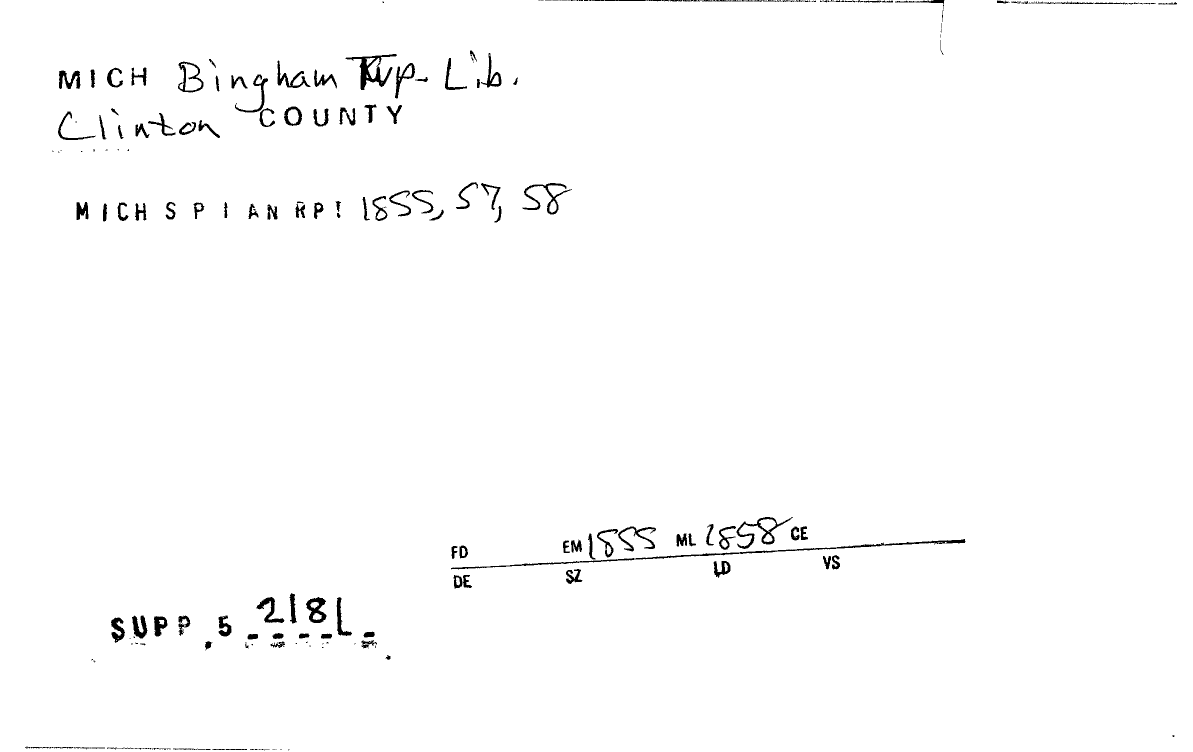 MICH Bingham Twp- Lib.
Clinton COUNTY
MICH S P I AN RPT 1855, 57, 58
FD EM 1855 ML 1858 CE
DE SZ LD VS
SUPP. 5 218L